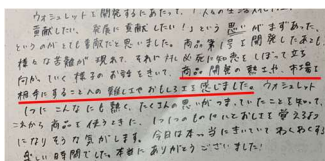 ウォシュレットを開発するにあたって、「人々の生活
貢献したい、発展に貢献したい!」という思いがまずあった、
というのがとても素敵だと思いました。商品第1号を開発したあとも
様々な苦難が現れて、それに必死に知恵をしぼって立ち
向かっていく様子のお話をきいて、商品開発の難しさや、市場を
相手にすることへの難しさやおもしろさを感じました。ウォシュレット
1つにこんなにも熱く、たくさんの思いがつまっていたことを知って、
これから商品を使うときに、1つ1つのものに対して
になりそうな気がします。今日は本当にきいていてわくわくする
楽しい時間でした。本当にありがとうございました!